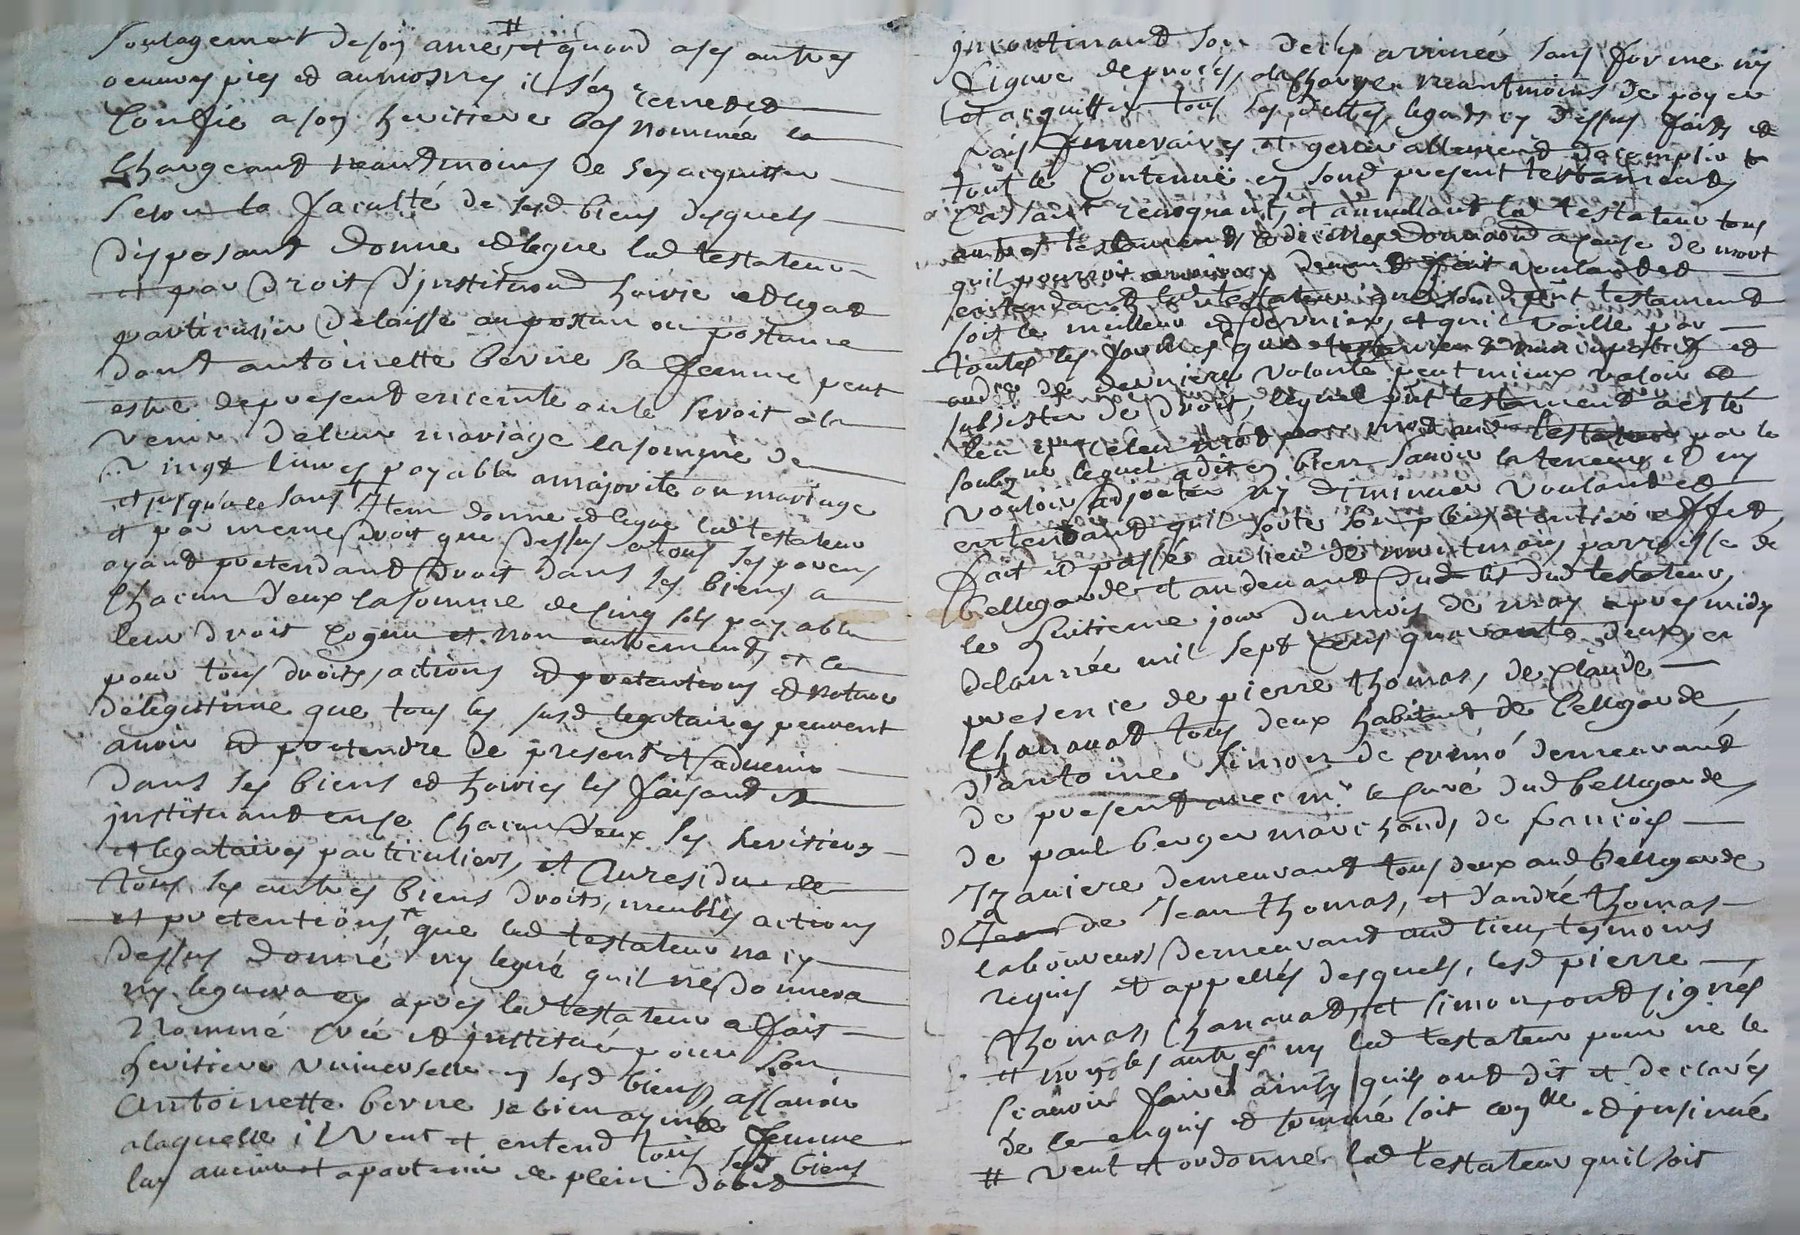 soulagement de son ame # et quand a ses autres
oeuvres pies et aumosnes il s'en remet et
Confie a son heritiere bas nommée la
Chargeant neantmoins de s'en acquitter
selon la faculté de sesd biens desquels
disposant donne et legue led testateur
et par droit d'institution hoirie et legat
particulier delaisse au postum ou postume
dont antoinette berne sa femme peut
estre de present enceinte ou le seroit a l
venir de leur mariage la somme de
vingt livres payable a majorité ou mariage
et jusqu'a ce sans Item donne et legue led testateur
et par meme droit que dessus a tous ses parens
ayant pretendant droit dans ses biens a
Chacun d'eux la somme de cinq sols payable
leur droit Cognu et non autrement et ce
pour tous droits, actions et pretentions et notave
de legitime que tous les susd legataires peuvent
avoir et pretendre de present et advenir
dans ses biens et hoiries les faisant et
instituant en ce Chacun d'eux ses heritiers
et legataires particuliers, et Au residu de
tous ses autres biens droits, meubles actions
et pretentions que led testateur na cy
dessus donné ny legué qu'il ne donnera
ny leguera cy apres led testateur a fait
Nommé crée et institué pour son
heritiere universelle en sesd biens, assavoir
Antoinette berne sa bien aymée femme
a laquelle il Veut et entend tous sesd biens
luy avenir et apartenir de plein droit
incontinant son deces arrivée sans forme ny
figure de procès, a la charge neantmoins de payer
et acquitter tous ses dettes, legats cy dessus faits et
frais funeraires et generallement d'accomplir
tout le Contenu en sond present testament
Cassant revoquant, et annullant led testateur tous
autres testaments codicilles donnaôn a cause de mort
qu'il pourroit avoir cy devant fait voulant et
entendant led testateur que sond pñt testament
soit le meilleur et dernier, et qu'il vaille par
toutes les formes que testament nuncupatif et
ordre de derniere volonté peut mieux valoir et
subsister de droit, lequel pñt testament a esté
leu et releu mot par mot aud testateur par le
soubzne lequel a dit en bien sçavoir la teneur et ny
vouloir adjouter ny diminuer voulant et
entendant qu'il sorte son plein et entier effet,
fait et passé au lieu de montmain parroisse de
bellegarde et au devant du lit dud testateur,
le huitieme jour du mois de may apres midy
de l'année mil sept cens quarante deux, en
presence de pierre thomas, de Claude
Chanavat tous deux habitant de bellegarde,
d'antoine Simon de demeurant
de present avec mr le curé dud bellegarde,
de paul berger marchand, de françois
demeurant tous deux aud bellegarde
de Jean thomas, et d'andré thomas
laboureurs demeurant aud lieu, tesmoins
requis et appellés desquels, lesd pierre
thomas, Chanavat, et simon, ont signés
et non les autres ny led testateur pour ne le
sçavoir faire ainsy qu'ils ont dit et declarés
de ce enquis et sommé soit conlle et insinué
# veut et ordonne led testateur quil soit